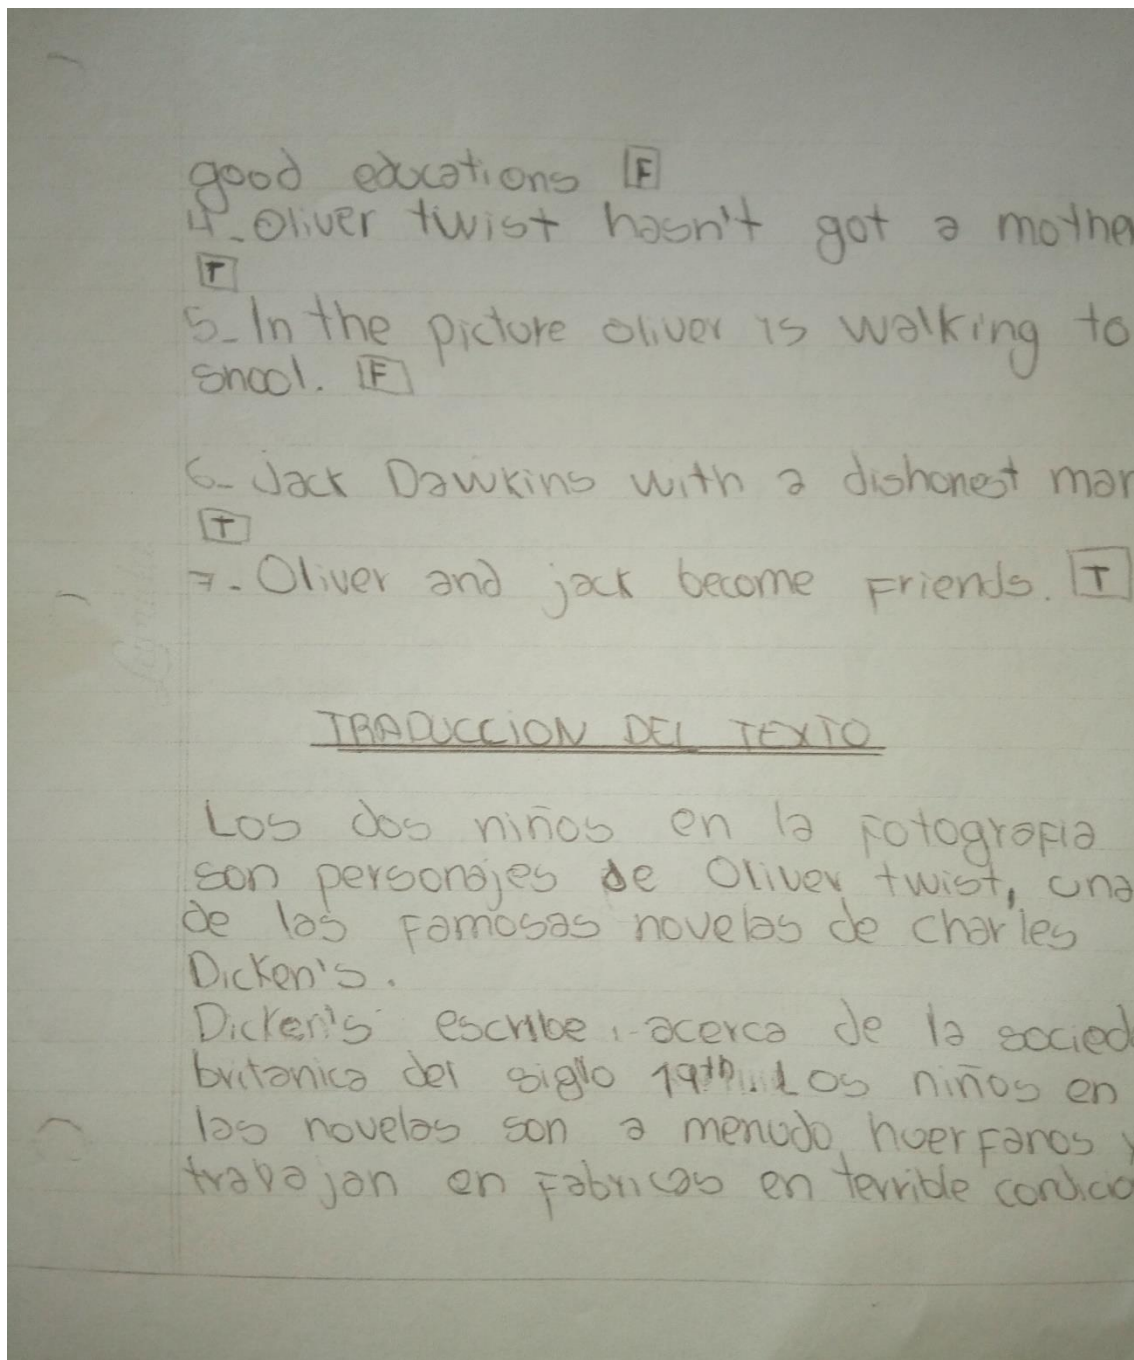 good educations F
4_Oliver twist hasn't got a mothe
T
5_In the picture oliver is walking to
shool. F
6_Jack Dawkins with a dishonest man
T
7-Oliver and jack become Friends. T
TRADUCCION DEL TEXTO
Los dos niños en la Fotografia
son personajes de Oliver twist, una
de las Famosas novelas de charles
Dicken's.
Dicken's escribe acerca de la socied
britanica del siglo 19th... Los niños en
las novelas son a menudo huerfanos y
trabajan en Fabricas en terrible condicio